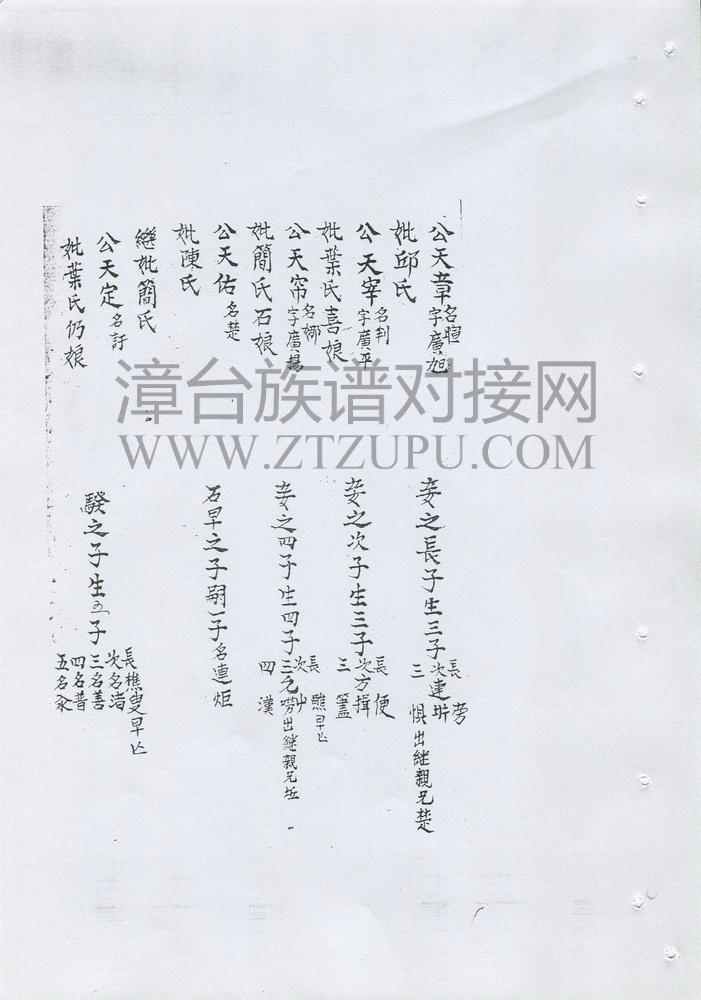 公天章 名暄 字廣旭
妣邱氏
公天宰 名判 字廣平
妣葉氏喜娘
公天帘 名娜 字廣揚
妣簡氏石娘
公天佑 名楚
妣陳氏
繼妣簡氏
公天定 名訝
妣葉氏仍娘
妾之長子生三子
長 旁
次達
三 惧出继親兄楚
妾之次子生三子
長 便
次方揖
三
妾之四子生四子
長 早亡
次
三 出继親兄
四 漢
石早之子嗣一子名連炬
發之子生五子
長 樵叟早亡
次名浩
三名善
四名普
五名
漳台族谱对接网
WWW.ZTZUPU.COM